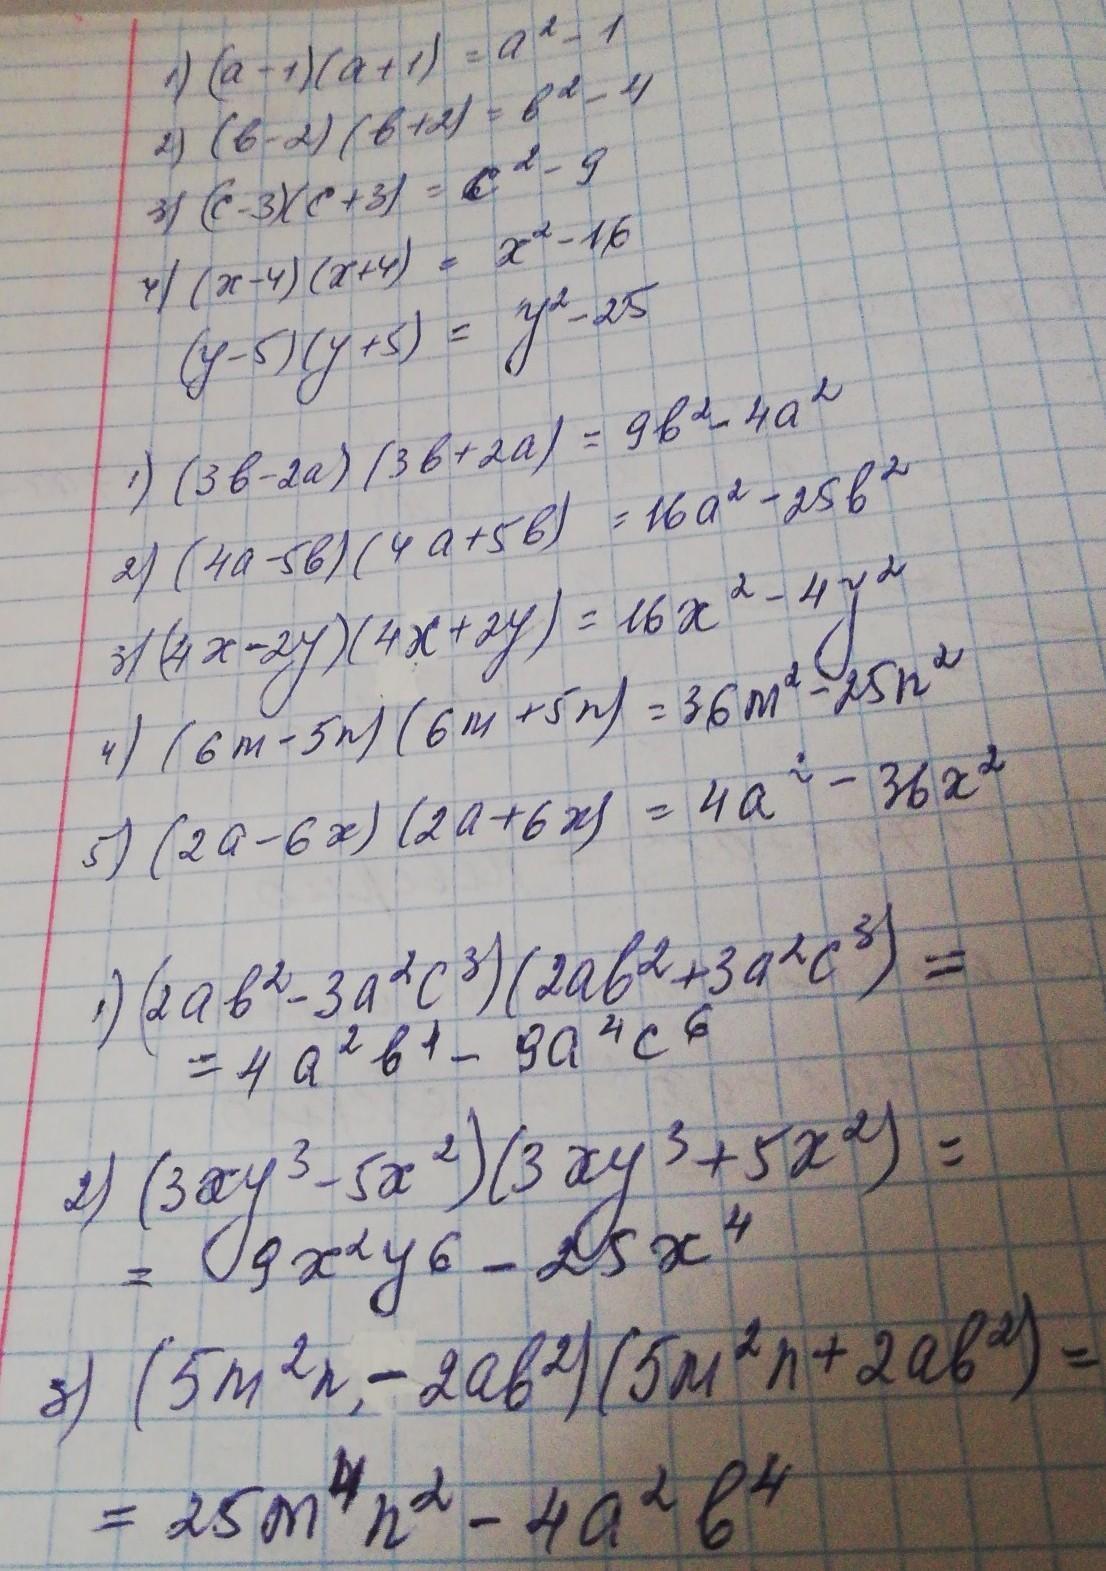 1) (a-1)(a+1) = a² - 1
2) (в-2)(в+2) = в² - 4
3) (c-3)(c+3) = c² - 9
4) (x-4)(x+4) = x² - 16
(y-5)(y+5) = y² - 25
1) (3в-2a)(3в+2a) = 9в² - 4a²
2) (4a-5в)(4a+5в) = 16a² - 25в²
3) (4x-2y)(4x+2y) = 16x² - 4y²
4) (6m-5n)(6m+5n) = 36m² - 25n²
5) (2a-6x)(2a+6x) = 4a² - 36x²
1) (2aв²-3a²c³)(2aв²+3a²c³) =
= 4a²в⁴ - 9a⁴c⁶
2) (3xy³-5x²)(3xy³+5x²) =
= 9x²y6 - 25x⁴
3) (5m²n,-2aв²)(5m²n+2aв²) =
= 25m⁴n² - 4a²в⁴